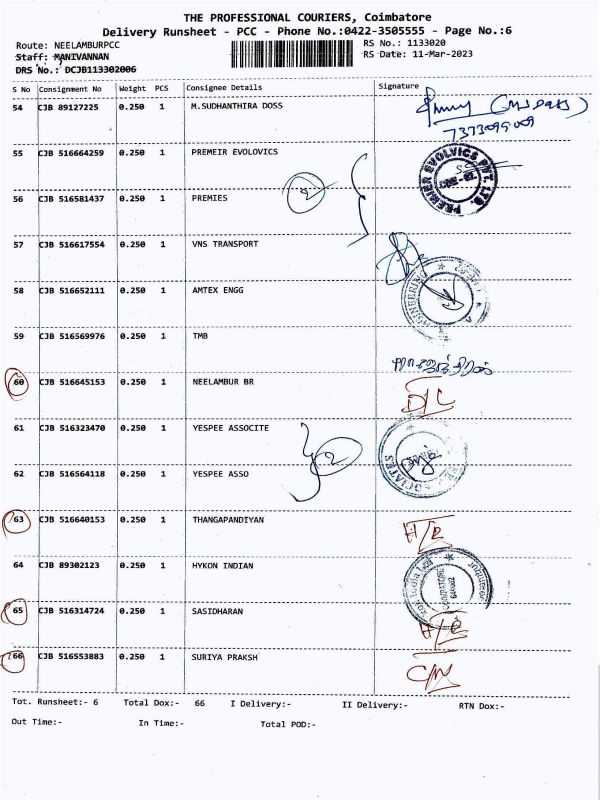 THE PROFESSIONAL COURIERS, Coimbatore
Delivery Runsheet - PCC - Phone No.:0422-3505555 - Page No.:6
Route: NEELAMBURPCC RS No.: 1133020
Staff: MANIVANNAN RS Date: 11-Mar-2023
DRS No.: DCJB113302006
S No Consignment No Weight PCS Consignee Details Signature
54 CJB 89127225 0.250 1 M.SUDHANTHIRA DOSS
7373099009
55 CJB 516664259 0.250 1 PREMEIR EVOLOVICS PREMIER EVOLVICS PVT. LTD
56 CJB 516581437 0.250 1 PREMIES 2
57 CJB 516617554 0.250 1 VNS TRANSPORT
58 CJB 516652111 0.250 1 AMTEX ENGG
59 CJB 516569976 0.250 1 TMB
60 CJB 516645153 0.250 1 NEELAMBUR BR D/L
61 CJB 516323470 0.250 1 YESPEE ASSOCITE 2
62 CJB 516564118 0.250 1 YESPEE ASSO
63 CJB 516640153 0.250 1 THANGAPANDIYAN
64 CJB 89302123 0.250 1 HYKON INDIAN
65 CJB 516314724 0.250 1 SASIDHARAN
66 CJB 516553883 0.250 1 SURIYA PRAKSH
Tot. Runsheet:- 6 Total Dox:- 66 I Delivery:- II Delivery:- RTN Dox:-
Out Time:- In Time:- Total POD:-